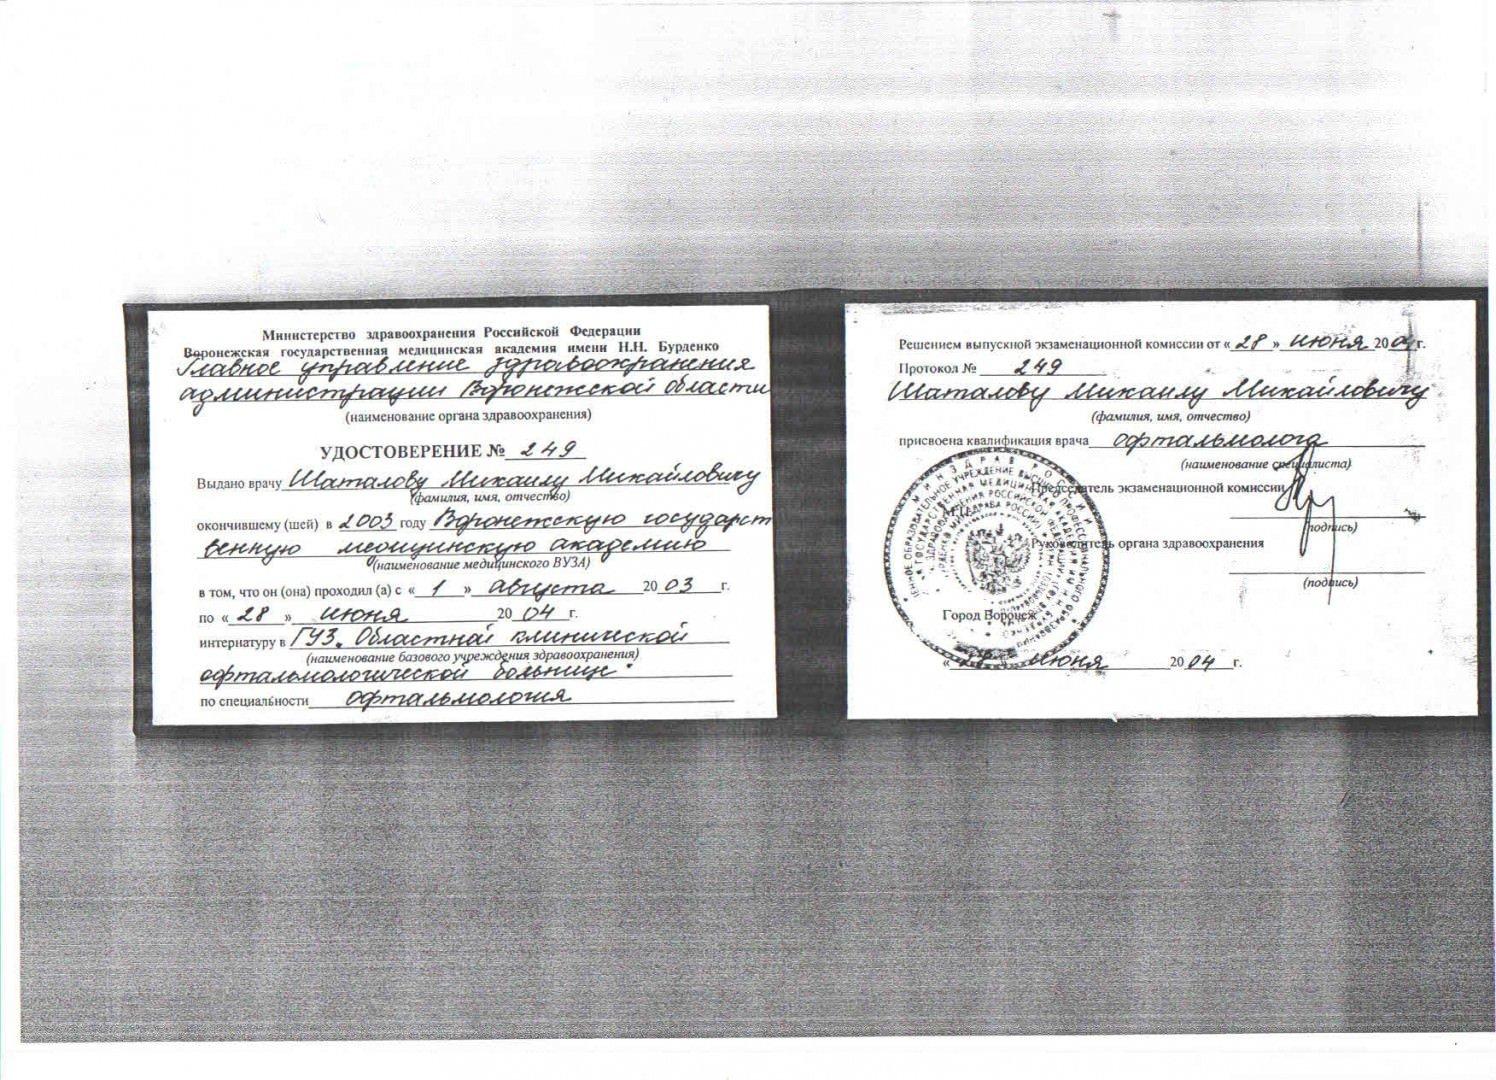 Министерство здравоохранения Российской Федерации
Воронежская государственная медицинская академия имени Н.Н. Бурденко
Главное управление здравоохранения
администрации Воронежской области
(наименование органа здравоохранения)
УДОСТОВЕРЕНИЕ № 249
Выдано врачу Шаталову Михаилу Михайловичу
(фамилия, имя, отчество)
окончившему (шей) в 2003 году Воронежскую государст
венную медицинскую академию
(наименование медицинского ВУЗА)
в том, что он (она) проходил (а) с « 1 » августа 2003 г.
по « 28 » июня 2004 г.
интернатуру в ГУЗ. Областной клинической
(наименование базового учреждения здравоохранения)
офтальмологической больнице
по специальности офтальмология
Решением выпускной экзаменационной комиссии от « 28 » июня 2004 г.
Протокол № 249
Шаталову Михаилу Михайловичу
(фамилия, имя, отчество)
присвоена квалификация врача офтальмолога
(наименование специалиста)
Председатель экзаменационной комиссии
М.П.
(подпись)
Руководитель органа здравоохранения
(подпись)
Город Воронеж
« » июня 2004 г.